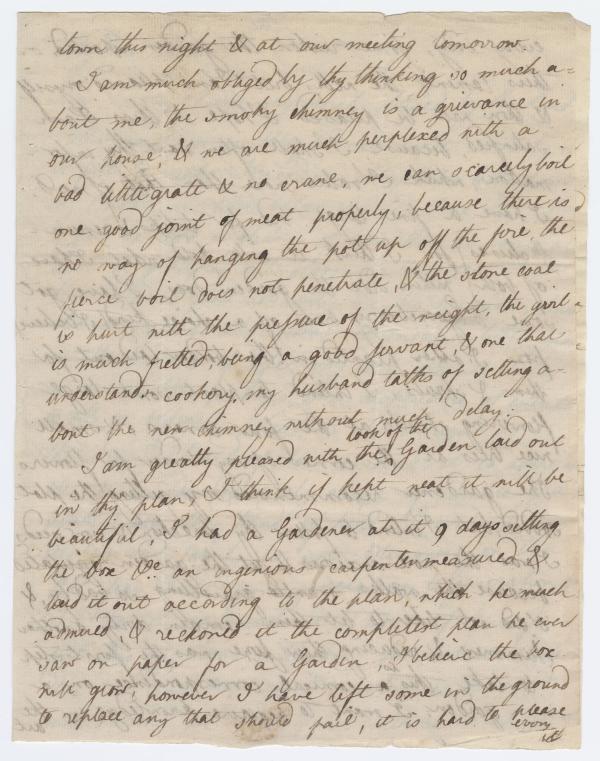 town this night & at our meeting tomorrow.
I am much obliged by thy thinking so much a=
bout me, the smoky chimney is a grievance in
our house, & we are much perplexed with a
bad little grate & no crane, we can scarcely boil
one good joint of meat properly, because there is
no way of hanging the pot up off the fire the
fierce boil does not penetrate, & the stone coal
is hurt with the pressure of the weight, the girl
is much fretted being a good servant, & one that
understands cookery, my husband talks of setting a-
bout the new chimney without much delay.
look of the
I am greatly pleased with the Garden laid out
in thy plan, I think if kept neat it will be
beautiful, I had a Gardener at it 9 days setting
the box &c an ingenious carpenter measured &
laid it out according to the plan, which he much
admired, & reckoned it the completest plan he ever
saw on paper for a Garden, I believe the box
will grow, however I have left some in the ground
to replace any that should fail, it is hard to please
every